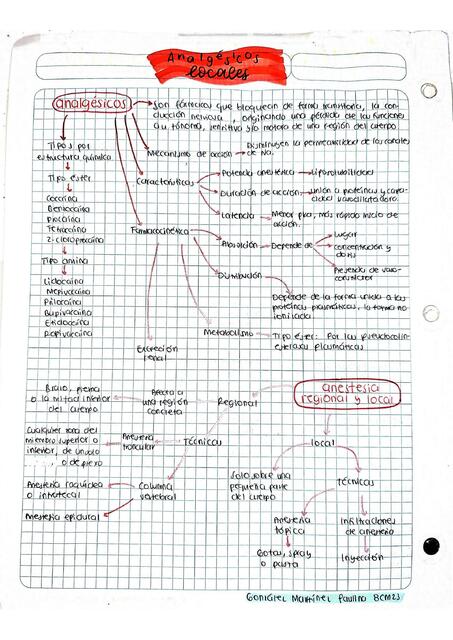 Analgésicos
locales
analgésicos
Son fármacos que bloquean de forma transitoria, la con-
ducción nerviosa, originando una pérdida de las funciones
autónoma, sensitiva y/o motora de una región del cuerpo
Mecanismo de acción
Disminuyen la permeabilidad de los canales
de Na.
Características
Potencia anestésica
Liposolubilidad
Duración de acción
unión a proteínas y capa-
cidad vasodilatadora.
Latencia
Menor pka, más rápido inicio de
acción.
Tipos por
estructura química
Tipo éster
Cocaína
Benzocaína
Procaína
Tetracaína
2-cloroprocaína
Tipo amina
Lidocaína
Mepivacaína
Prilocaína
Bupivacaína
Etidocaína
Ropivacaína
Farmacocinética
Absorción
Depende de
Lugar
concentración y
dosis
Presencia de vaso-
constrictor
Distribución
Depende de la forma unida a las
proteínas plasmáticas, la forma no
ionizada
Metabolismo
Tipo éster: Por las pseudocolin-
esterasas plasmáticas
Excreción
renal
anestesia
regional y local
Regional
Afecta a
una región
concreta
Brazo, pierna
o la mitad inferior
del cuerpo
Técnicas
Anestesia
troncular
Cualquier zona del
miembro superior o
inferior, de
o de
Columna
vertebral
Anestesia raquídea
o intratecal
Anestesia epidural
local
Solo sobre una
pequeña parte
del cuerpo
Técnicas
Anestesia
tópica
Gotas, spray
o pasta
Infiltraciones
de anestesia
Inyección
González Martínez Paulina BCM23